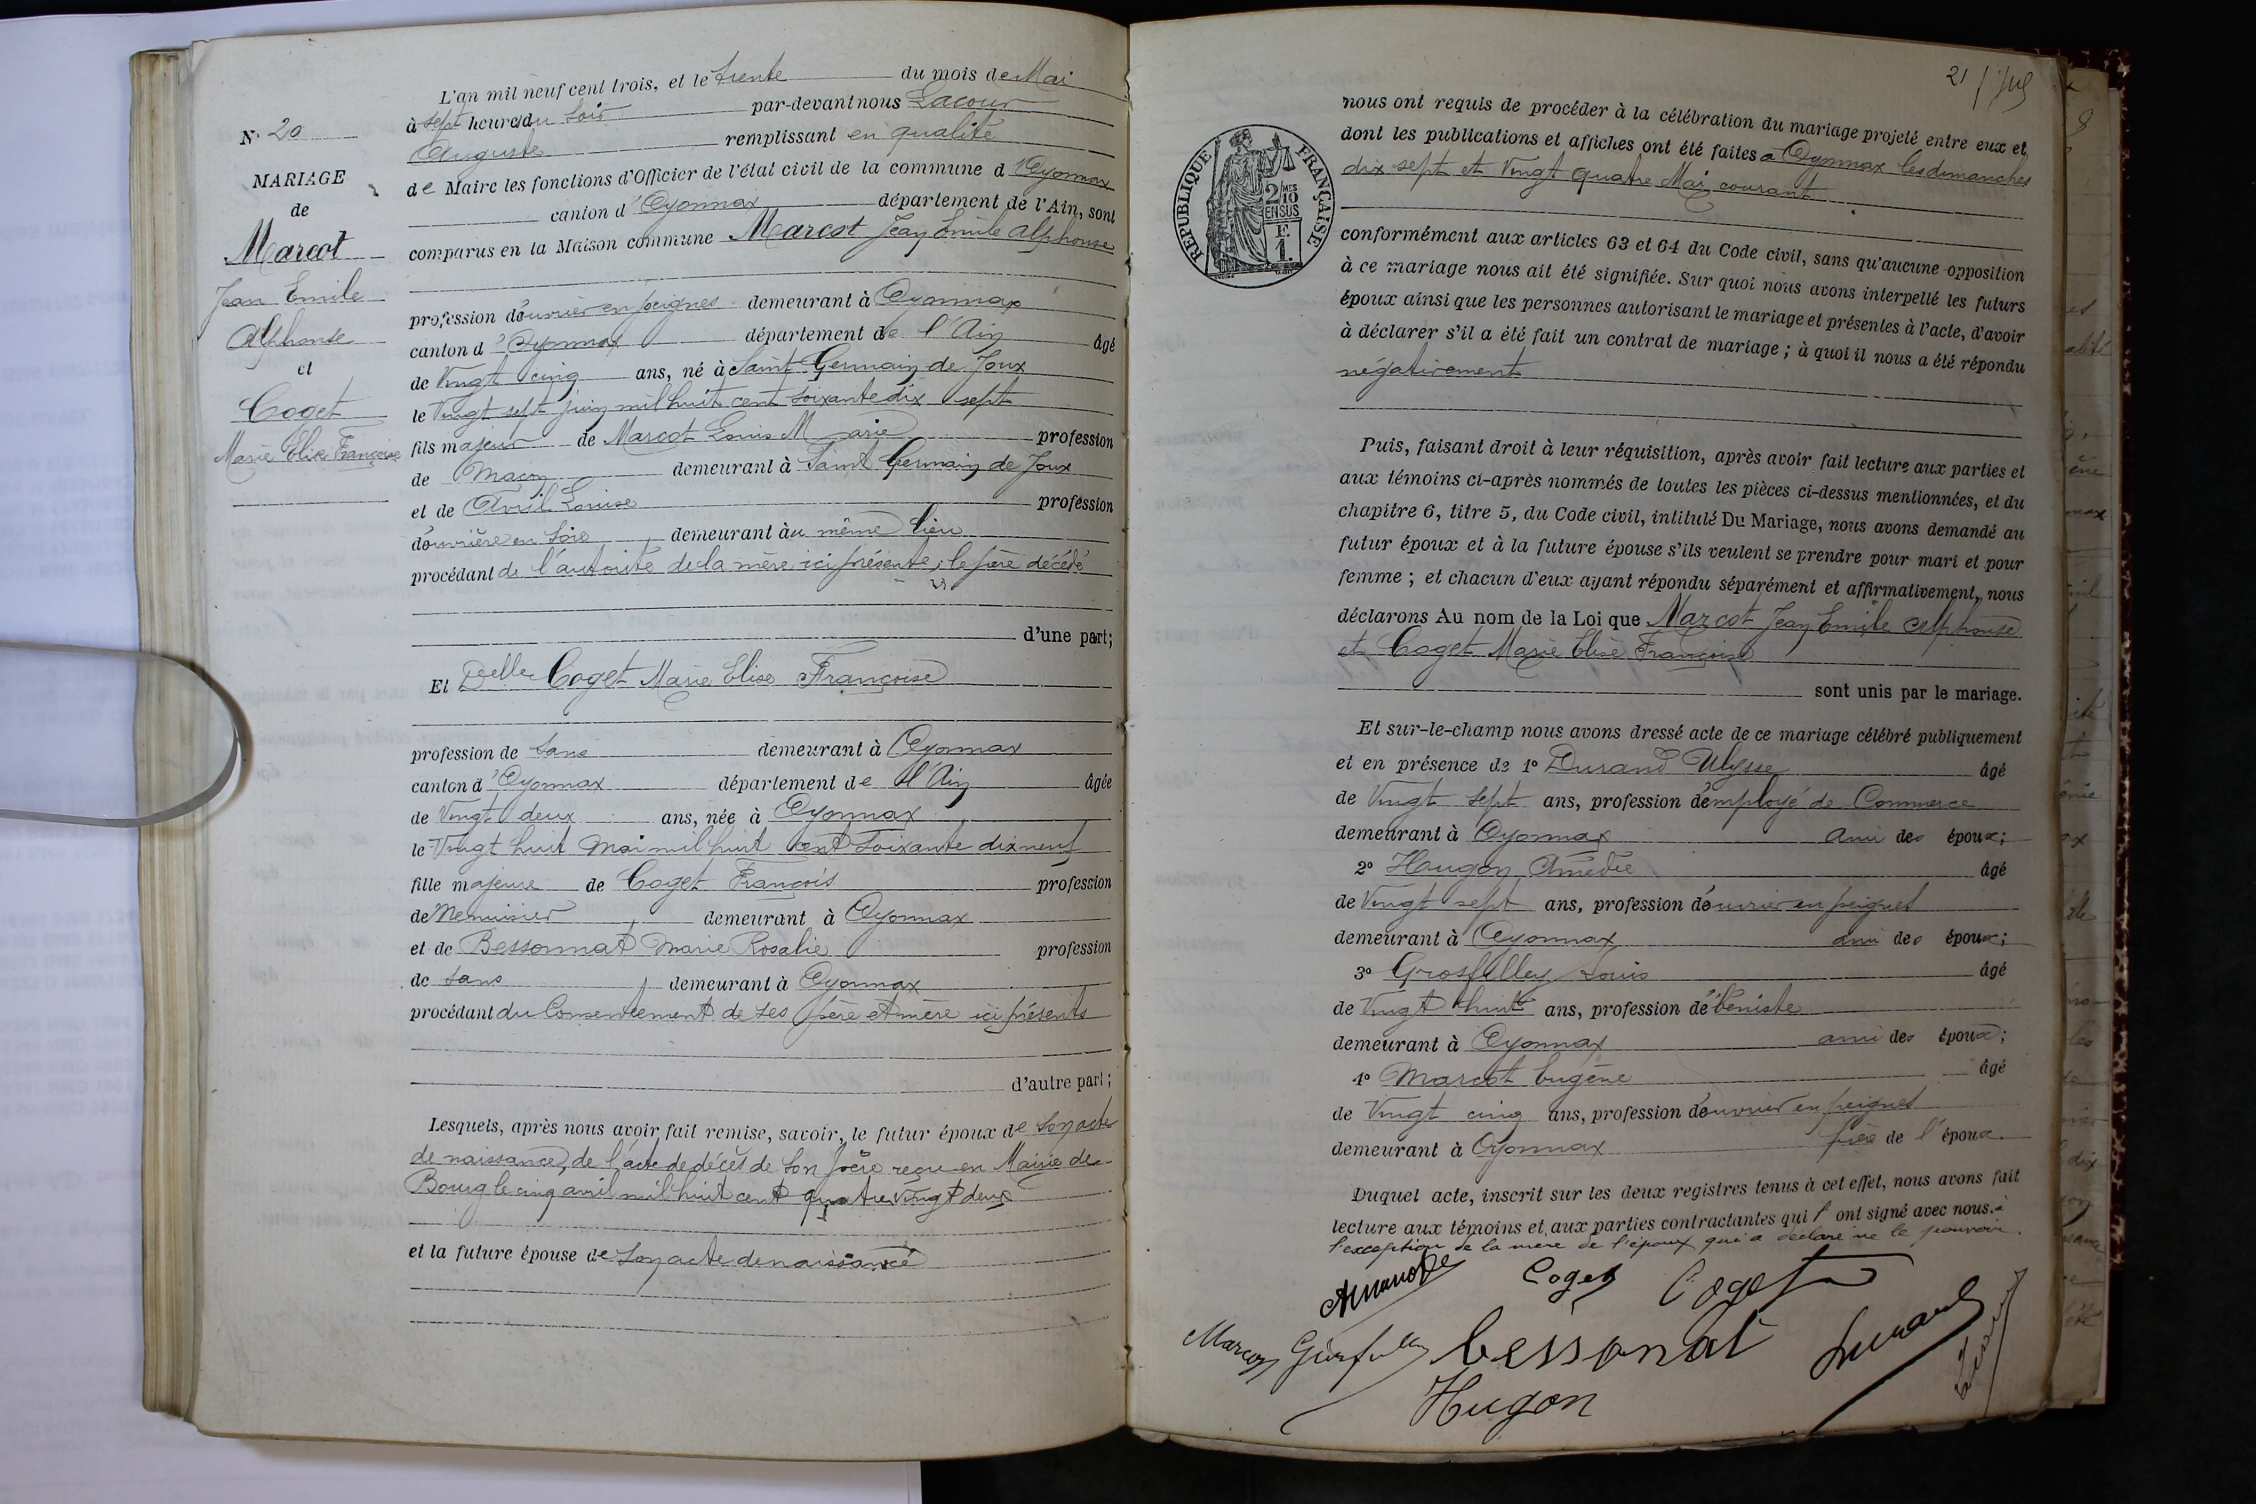 N° 20
MARIAGE
de
Marcot
Jean Emile
Alphonse
et
Coget
Marie Elise Françoise
L'an mil neuf cent trois, et le trente du mois de Mai
à sept heures du soir par-devant nous Lacour
Auguste remplissant en qualité
de Maire les fonctions d'Officier de l'état civil de la commune d'Oyonnax
canton d'Oyonnax département de l'Ain, sont
comparus en la Maison commune Marcot Jean Emile Alphonse
profession d'ouvrier en peignes demeurant à Oyonnax
canton d'Oyonnax département de l'Ain âgé
de Vingt cinq ans, né à Saint Germain de Joux
le Vingt sept juin mil huit cent soixante dix sept
fils majeur de Marcot Louis Marie profession
de Maçon demeurant à Saint Germain de Joux
et de Avril Louise profession
d'ouvrière en soie demeurant au même lieu
procédant de l'autorité de la mère ici présente, le père décédé
d'une part;
Et Delle Coget Marie Elise Françoise
profession de sans demeurant à Oyonnax
canton d'Oyonnax département de l'Ain âgée
de Vingt deux ans, née à Oyonnax
le Vingt huit Mai mil huit cent soixante dix neuf
fille majeure de Coget François profession
de Menuisier demeurant à Oyonnax
et de Bessonnat Marie Rosalie profession
de sans demeurant à Oyonnax
procédant du Consentement de ses père et mère ici présents
d'autre part;
Lesquels, après nous avoir fait remise, savoir, le futur époux de son acte
de naissance, de l'acte de décès de son père reçu en Mairie de
Bourg le cinq avril mil huit cent quatre vingt deux
et la future épouse de son acte de naissance
21
RÉPUBLIQUE FRANÇAISE
2 MES
10
EN SUS
F.
1.
nous ont requis de procéder à la célébration du mariage projeté entre eux et
dont les publications et affiches ont été faites à Oyonnax les dimanches
dix sept et Vingt quatre Mai courant
conformément aux articles 63 et 64 du Code civil, sans qu'aucune opposition
à ce mariage nous ait été signifiée. Sur quoi nous avons interpellé les futurs
époux ainsi que les personnes autorisant le mariage et présentes à l'acte, d'avoir
à déclarer s'il a été fait un contrat de mariage; à quoi il nous a été répondu
négativement
Puis, faisant droit à leur réquisition, après avoir fait lecture aux parties et
aux témoins ci-après nommés de toutes les pièces ci-dessus mentionnées, et du
chapitre 6, titre 5, du Code civil, intitulé Du Mariage, nous avons demandé au
futur époux et à la future épouse s'ils veulent se prendre pour mari et pour
femme; et chacun d'eux ayant répondu séparément et affirmativement, nous
déclarons Au nom de la Loi que Marcot Jean Emile Alphonse
et Coget Marie Elise Françoise
sont unis par le mariage.
Et sur-le-champ nous avons dressé acte de ce mariage célébré publiquement
et en présence de 1° Durand Ulysse âgé
de Vingt sept ans, profession d'employé de Commerce
demeurant à Oyonnax ami des époux;
2° Hugon Amédée âgé
de Vingt sept ans, profession d'ouvrier en peignes
demeurant à Oyonnax ami des époux;
3° Grosfilley Louis âgé
de Vingt huit ans, profession d'ébéniste
demeurant à Oyonnax ami des époux;
4° Marcot Eugène âgé
de Vingt cinq ans, profession d'ouvrier en peignes
demeurant à Oyonnax frère de l'époux.
Duquel acte, inscrit sur les deux registres tenus à cet effet, nous avons fait
lecture aux témoins et aux parties contractantes qui l'ont signé avec nous. à
l'exception de la mère de l'époux qui a déclaré ne le pouvoir.
Coget Coget
Marcot Bessonat Durand
Hugon